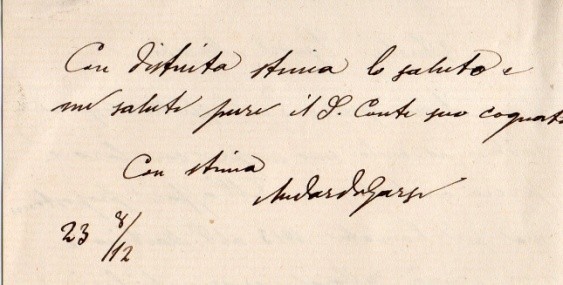 Con distinta stima lo saluto e
mi saluti pure il S. Conte suo cognato
Con stima
23 8/12